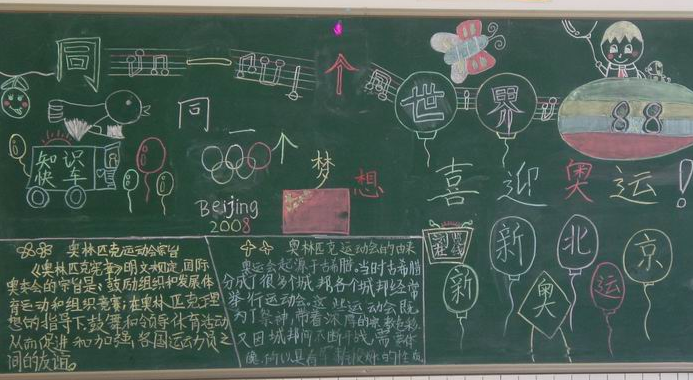 同一个世界
同一个梦想
88
知识
快车
Beijing
2008
喜迎奥运!
新北京
新奥运
奥林匹克运动会宗旨
《奥林匹克宪章》明文规定,国际
奥委会的宗旨是:鼓励组织和发展体
育运动和组织竞赛;在奥林匹克理
想的指导下,鼓舞和领导体育活动
从而促进和加强各国运动员之
间的友谊。
奥林匹克运动会的由来
奥运会起源于古希腊。当时古希腊
分成了很多个城邦,各个城邦经常
举行运动会。这些运动会既
为了祭神,带着深厚的宗教色彩
又因城邦间不断开战,需